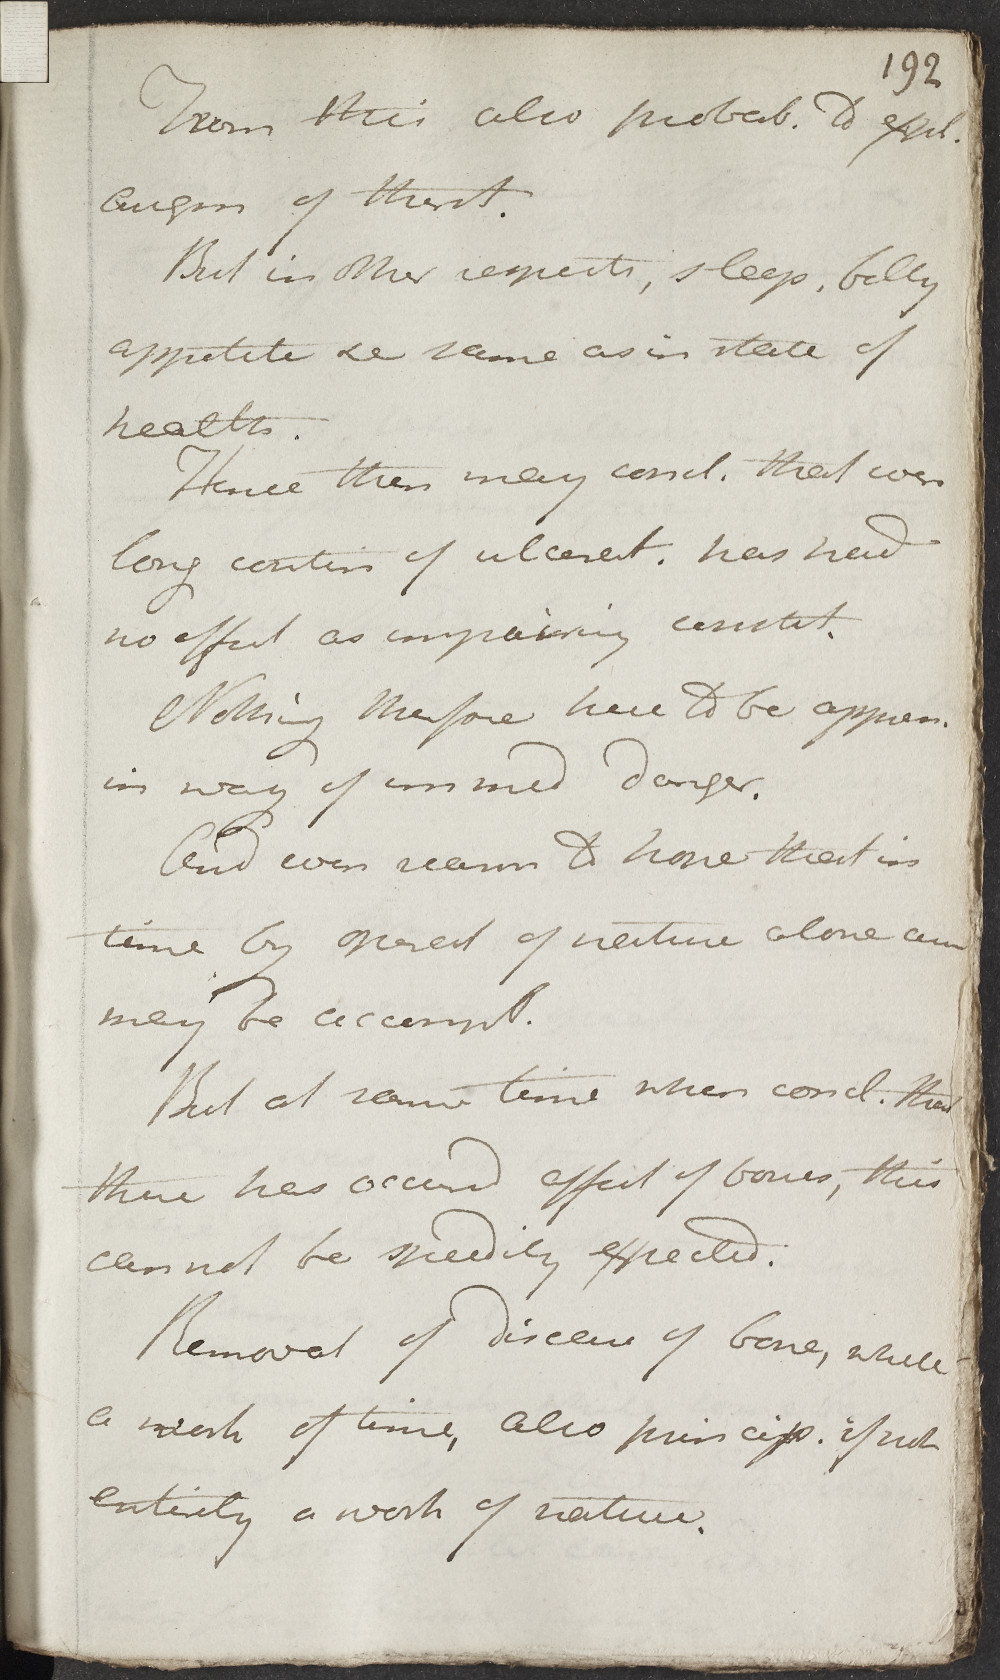 192
From this also probab. to expl.
augm of thirst.
But in other respects, sleep, belly
appetite &c same as in state of
health.
Hence then may concl. that even
long contin of ulcerat. has had
no effect as impairing constit.
Nothing therefore here to be appren.
in way of immed danger.
And even reason to hope that in
time by operat of nature alone cure
may be accompl.
But at same time when concl. that
there has occurred affect of bones, this
cannot be speedily expected.
Removal of disease of bone, while
a work of time, also princip. if not
entirely a work of nature.